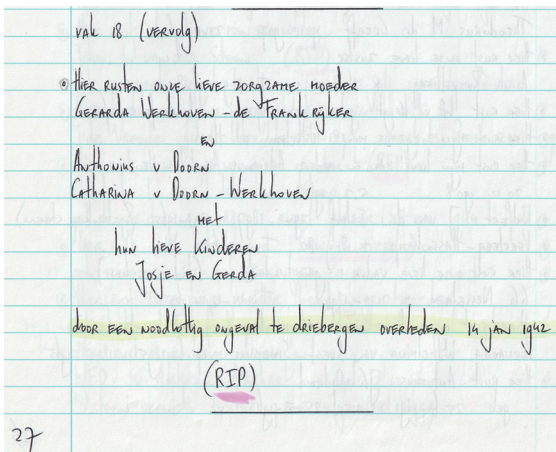 vak 18 (vervolg)
Hier rusten onze lieve zorgzame moeder
Gerarda Werkhoven - de Frankrijker
en
Anthonius v Doorn
Catharina v Doorn - Werkhoven
met
hun lieve kinderen
Josje en Gerda
door een noodlottig ongeval te driebergen overleden 14 jan 1942
(RIP)
27